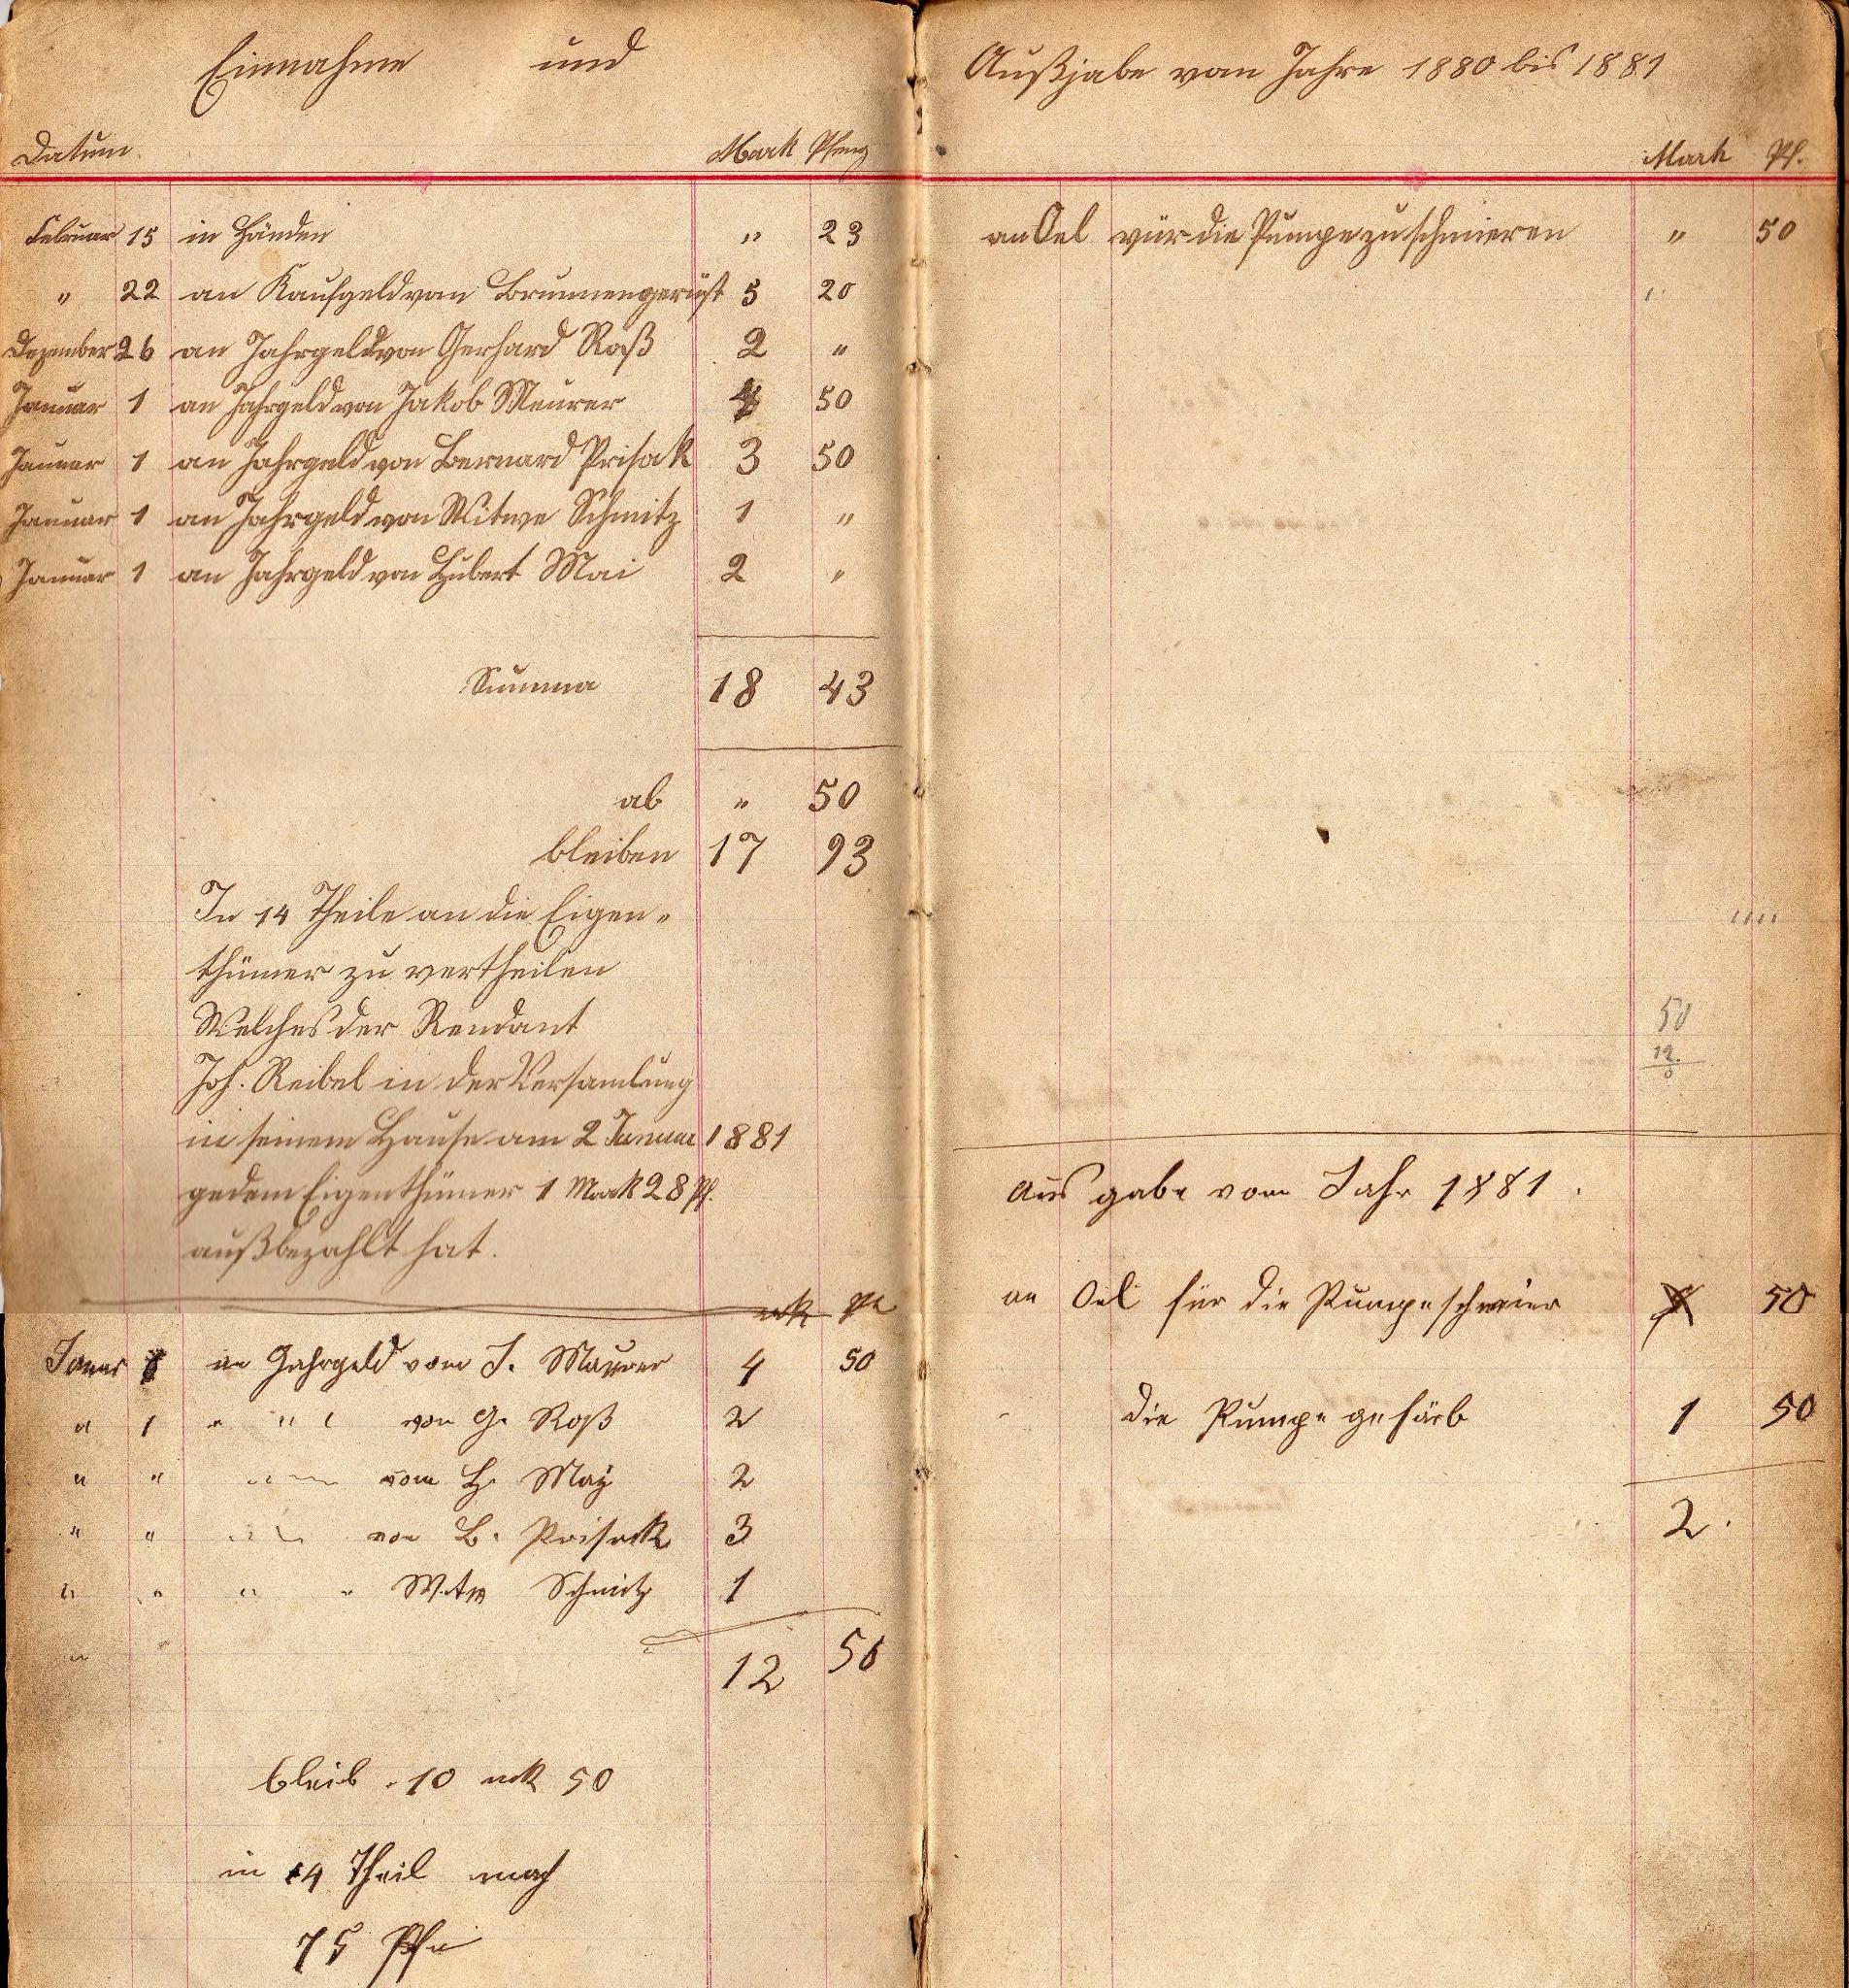 Einnahme und
Datum Mark Pfeng
Februar 15 in Händen " 23
" 22 an Kaufgeld van Brunnengerüst 5 20
Dezember 26 an Jahrgeld von Gerhard Roß 2 "
Januar 1 an Jahrgeld von Jakob Meurer 4 50
Januar 1 an Jahrgeld von Bernard Prisak 3 50
Januar 1 an Jahrgeld von Witwe Schmitz 1 "
Januar 1 an Jahrgeld von Hubert Mai 2 "
Summa 18 43
ab " 50
bleiben 17 93
In 14 Theile an die Eigen-
thümer zu vertheilen
Welches der Rendant
Joh. Reibel in der Versamlung
in seinem Hause am 2 Januar 1881
gedem Eigenthümer 1 Mark 28 Pf.
außbezahlt hat.
mk
Januar an Gahrgeld vom J. Maurer 4 50
" 1 " " " von G. Roß 2
" " " " vom H. May 2
" " " " von B. Prisack 3
" " " " Schmitz 1
" "
12 50
bleib 10 mk 50
in 14 Theil mach
75
Außjabe van Jahre 1880 bis 1881
Mark Pf.
an Oel vür die Pumpe zu schmieren " 50
50
12
Ausgabe vom Jahr 1881.
an Oel für die Pumpe schmier 50
die Pumpe gefärb 1 50
2.